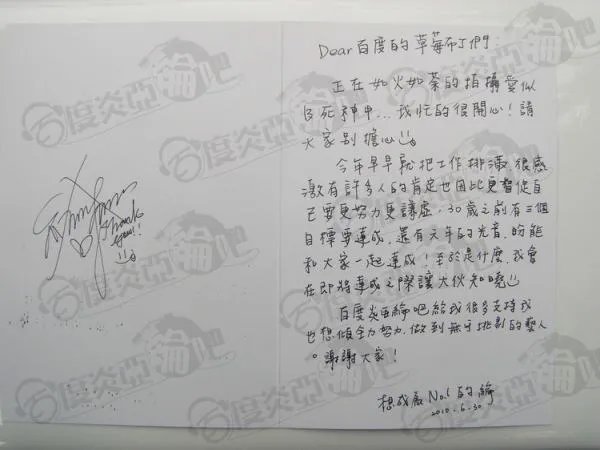 Dear 百度的草莓布丁們:
正在如火如荼的拍攝愛似
百死神中...我忙的很開心!請
大家別擔心
今年早早就把工作排滿,很感
激有許多人的肯定也因此更督促自
己要更努力更謙虛,30歲之前有三個
目標要達成,還有六年的光音,盼能
和大家一起達成!至於是什麼,我會
在即將達成之際讓大伙知曉
百度炎亞綸吧給我很多支持我
也想傾全力努力,做到無可挑剔的藝人
。謝謝大家!
想成為No.1的綸
2010.6.30
thank
you!
百度炎亞綸吧